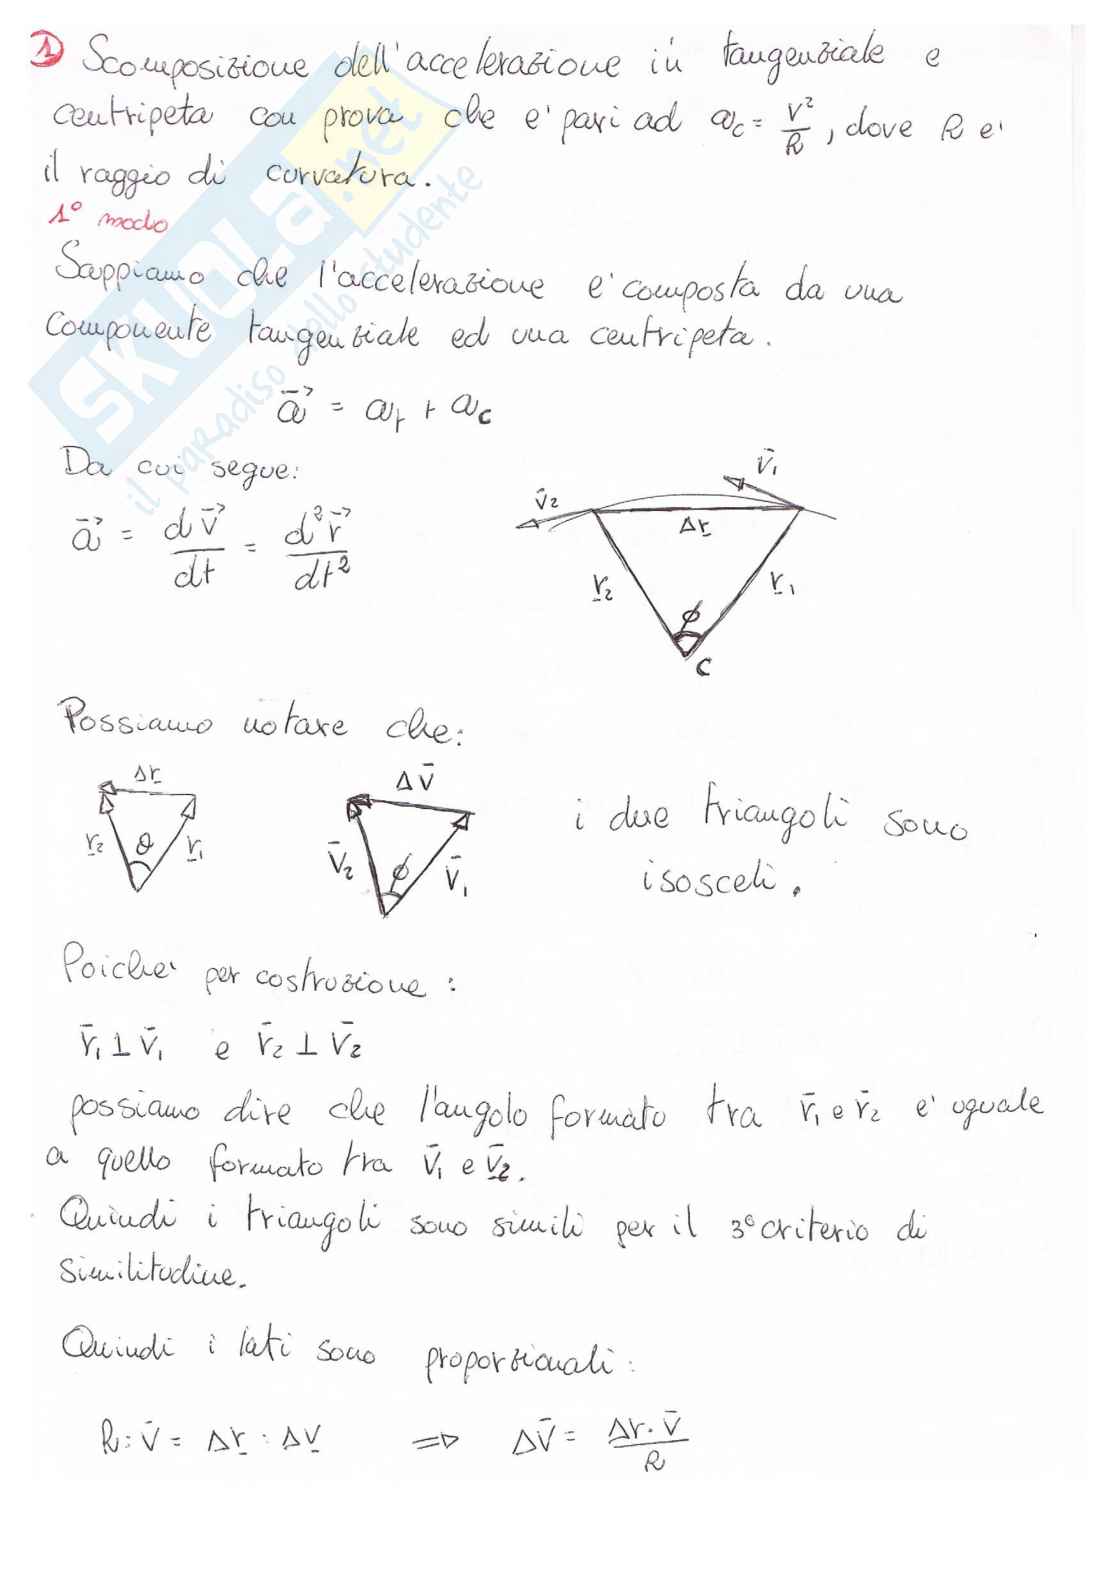 1) Scomposizione dell'accelerazione in tangenziale e
centripeta con prova che e' pari ad ac = v²/R, dove R e'
il raggio di curvatura.
1° modo
Sappiamo che l'accelerazione e' composta da una
componente tangenziale ed una centripeta.
a⃗ = at + ac
Da cui segue:
a⃗ = dv⃗/dt = d²r⃗/dt²
v̄2 v̄1
Δr
r2 r1
ϕ
C
Possiamo notare che:
Δr Δv̄
r2 θ r1 v̄2 ϕ v̄1
i due triangoli sono
isosceli.
Poiche' per costruzione:
r̄1 ⊥ v̄1 e r̄2 ⊥ v̄2
possiamo dire che l'angolo formato tra r̄1 e r̄2 e' uguale
a quello formato tra v̄1 e v̄2.
Quindi i triangoli sono simili per il 3° criterio di
similitudine.
Quindi i lati sono proporzionali:
R : v̄ = Δr : Δv ⇒ Δv̄ = Δr·v̄/R
SKUOLA.net
il paradiso dello studente